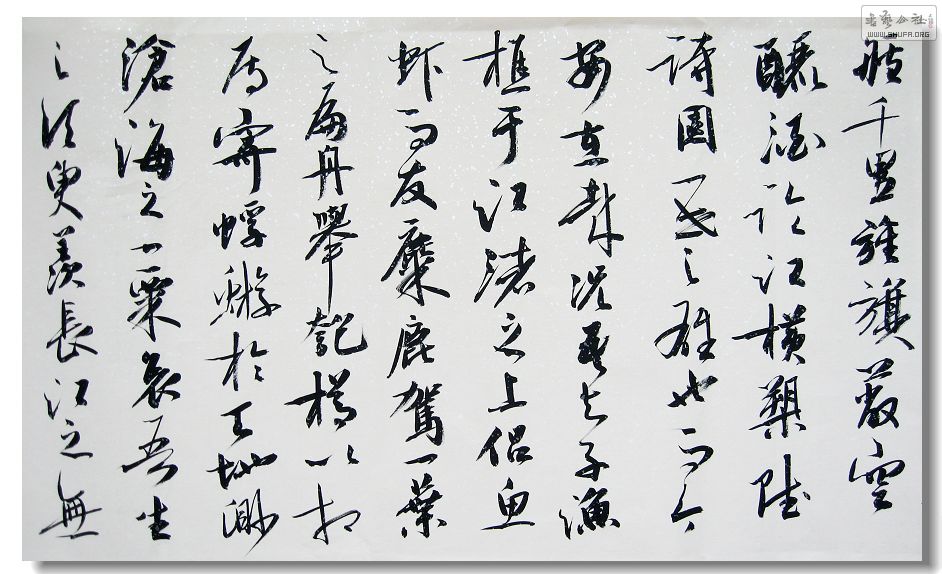 艫千里旌旗蔽空
釃酒臨江橫槊賦
詩固一世之雄也而今
安在哉況吾与子漁
樵于江渚之上侣魚
虾而友麋鹿駕一葉
之扁舟舉匏樽以相
属寄蜉蝣於天地渺
滄海之一粟哀吾生
之須臾羨長江之無
WWW.SHUFA.ORG